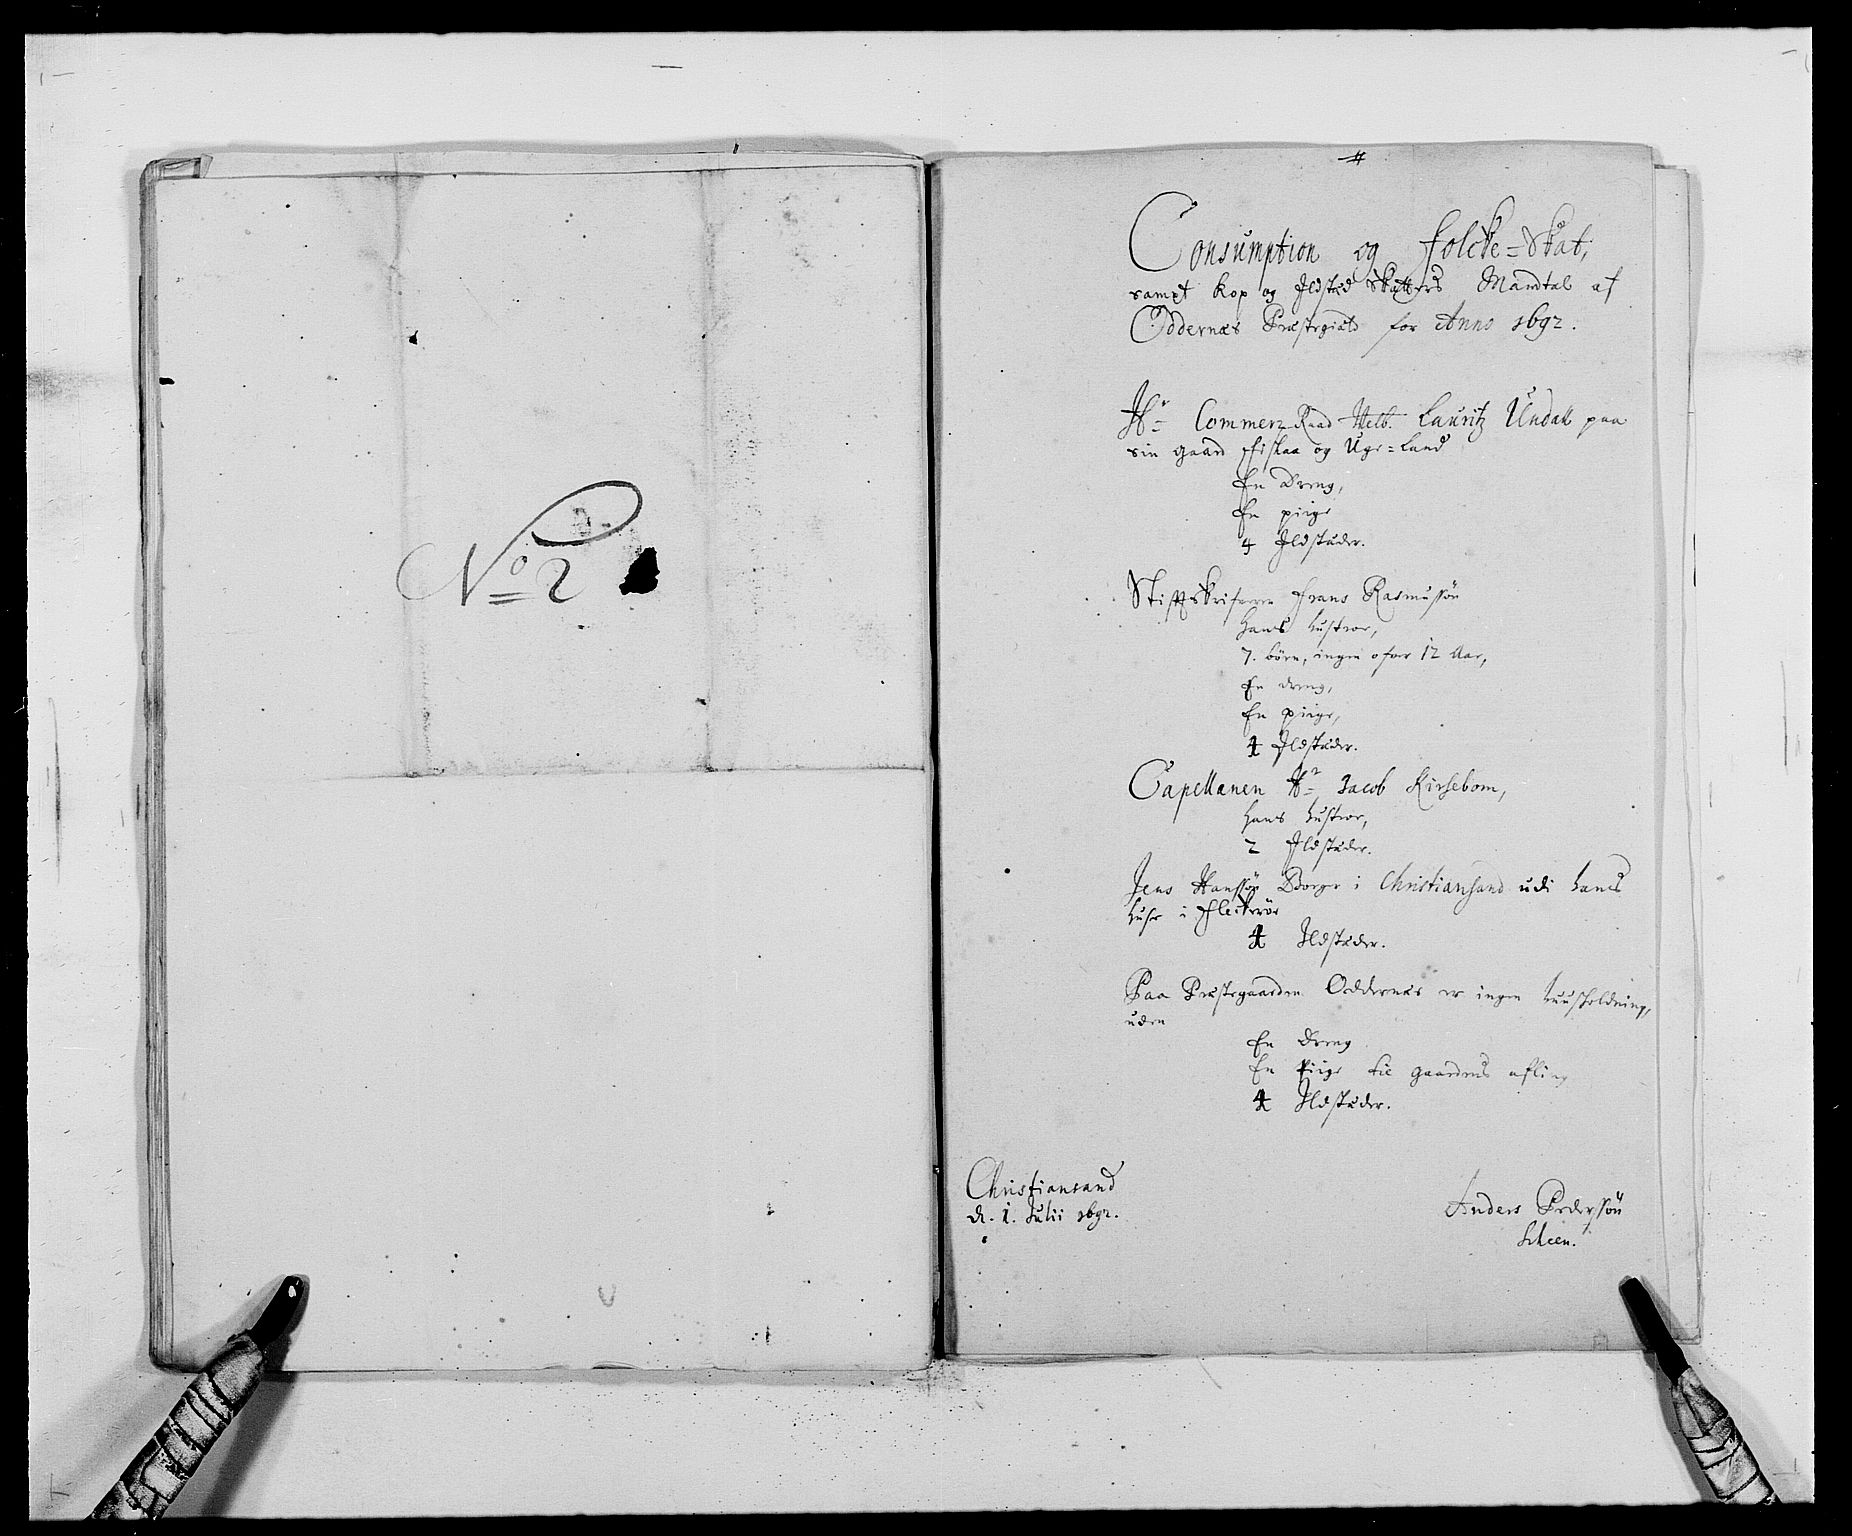 No 2
Consumption og folcke-Skat,
sampt Kop og Ildsted Skatters Mandtal af
Oddernæs Præstegield for Anno 1692.
Hr Commerz Raad Welb. Lauritz Undall paa
sin gaard Fiskaa og Uge-land
En Dreng,
En piige
4 Ildstæder.
Stiftskrifveren Frans Rasmussøn
Hans hustroe,
7. børn, ingen ofver 12 Aar,
En dreng,
En piige,
4 Ildstæder.
Capellanen Hr Jacob Kirsebom,
Hans hustroe,
2 Ildstæder.
Jens Hanssøn Borger i Christiansand udi hans
huse i Fleckerøe
4 Ildstæder.
Paa Præstegaarden Oddernæs er ingen huusholdning,
uden
En Dreng
En Piige til gaardens afling
4 Ildstæder.
Christiansand
d. 1. Julii 1692.
Anders Pederssøn
Scheen.